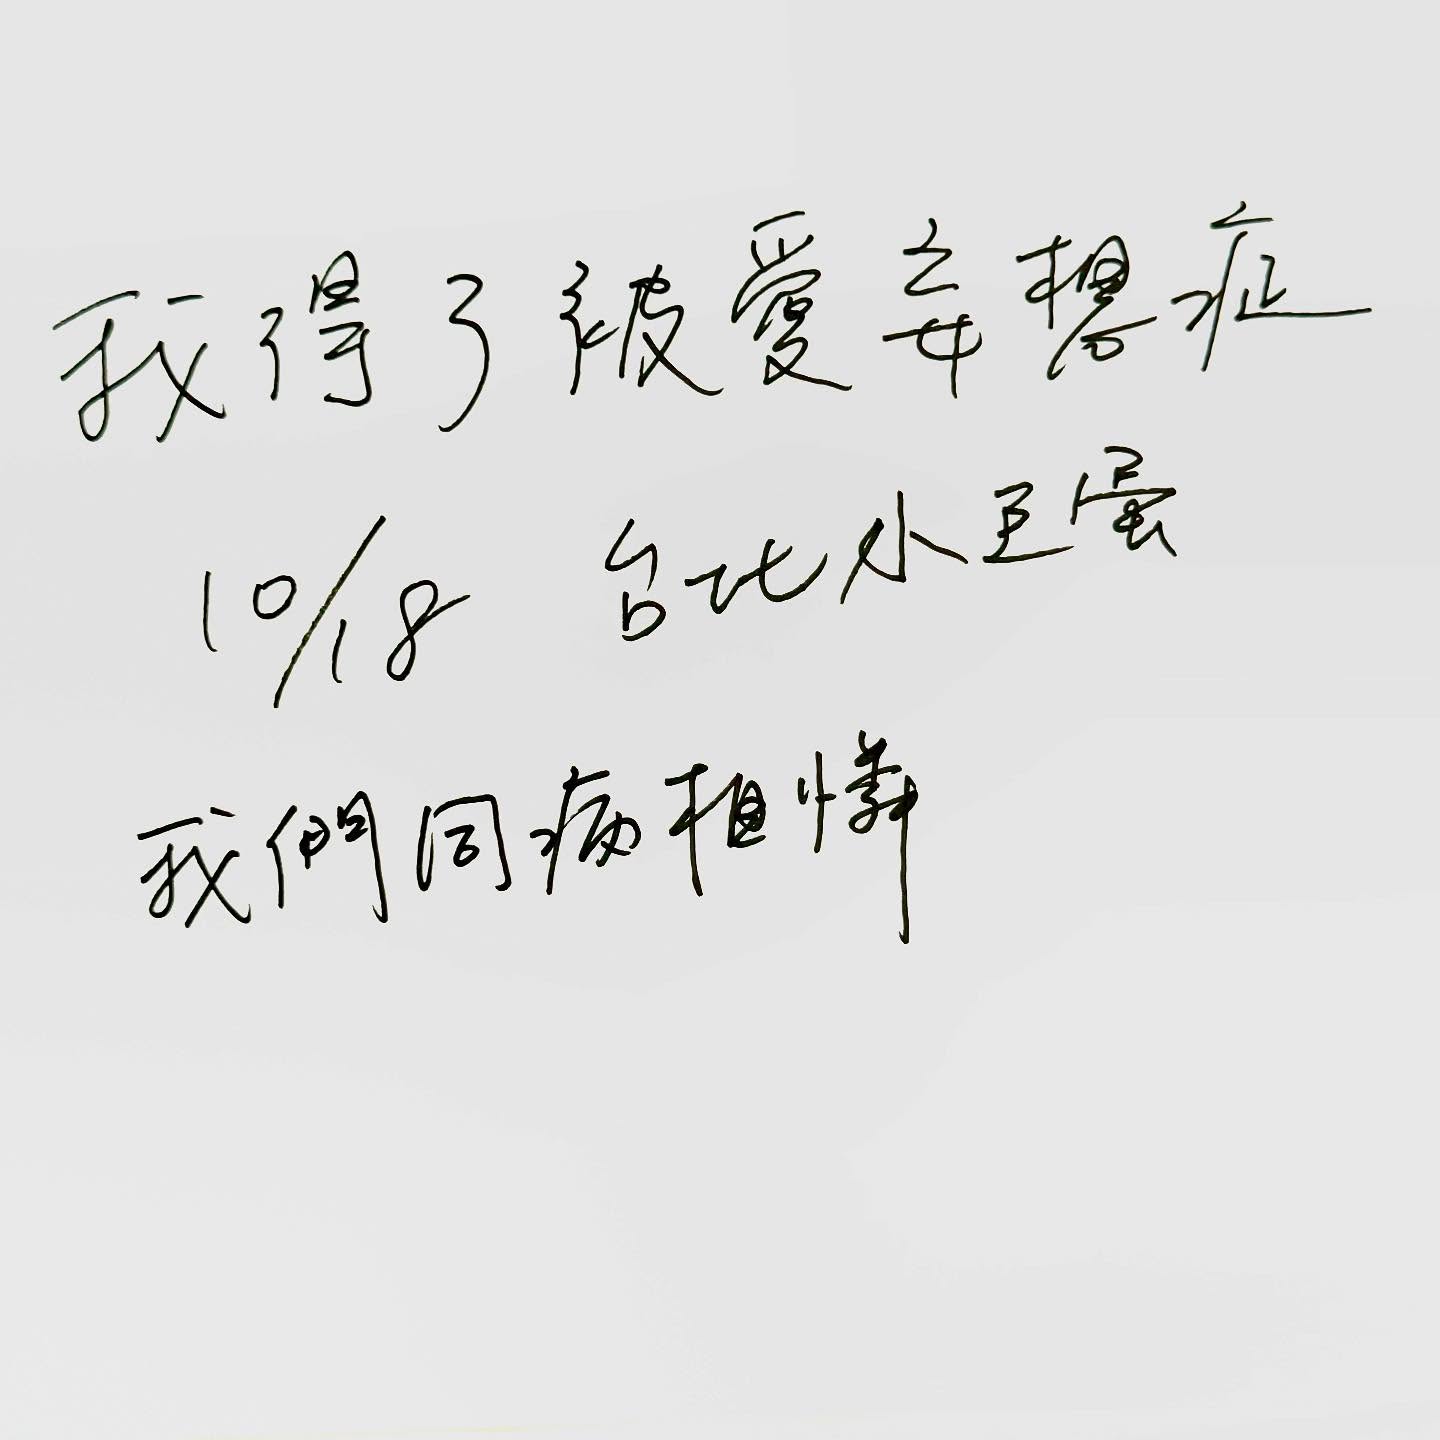 我得了被愛妄想症
10/18 台北小巨蛋
我們同病相憐